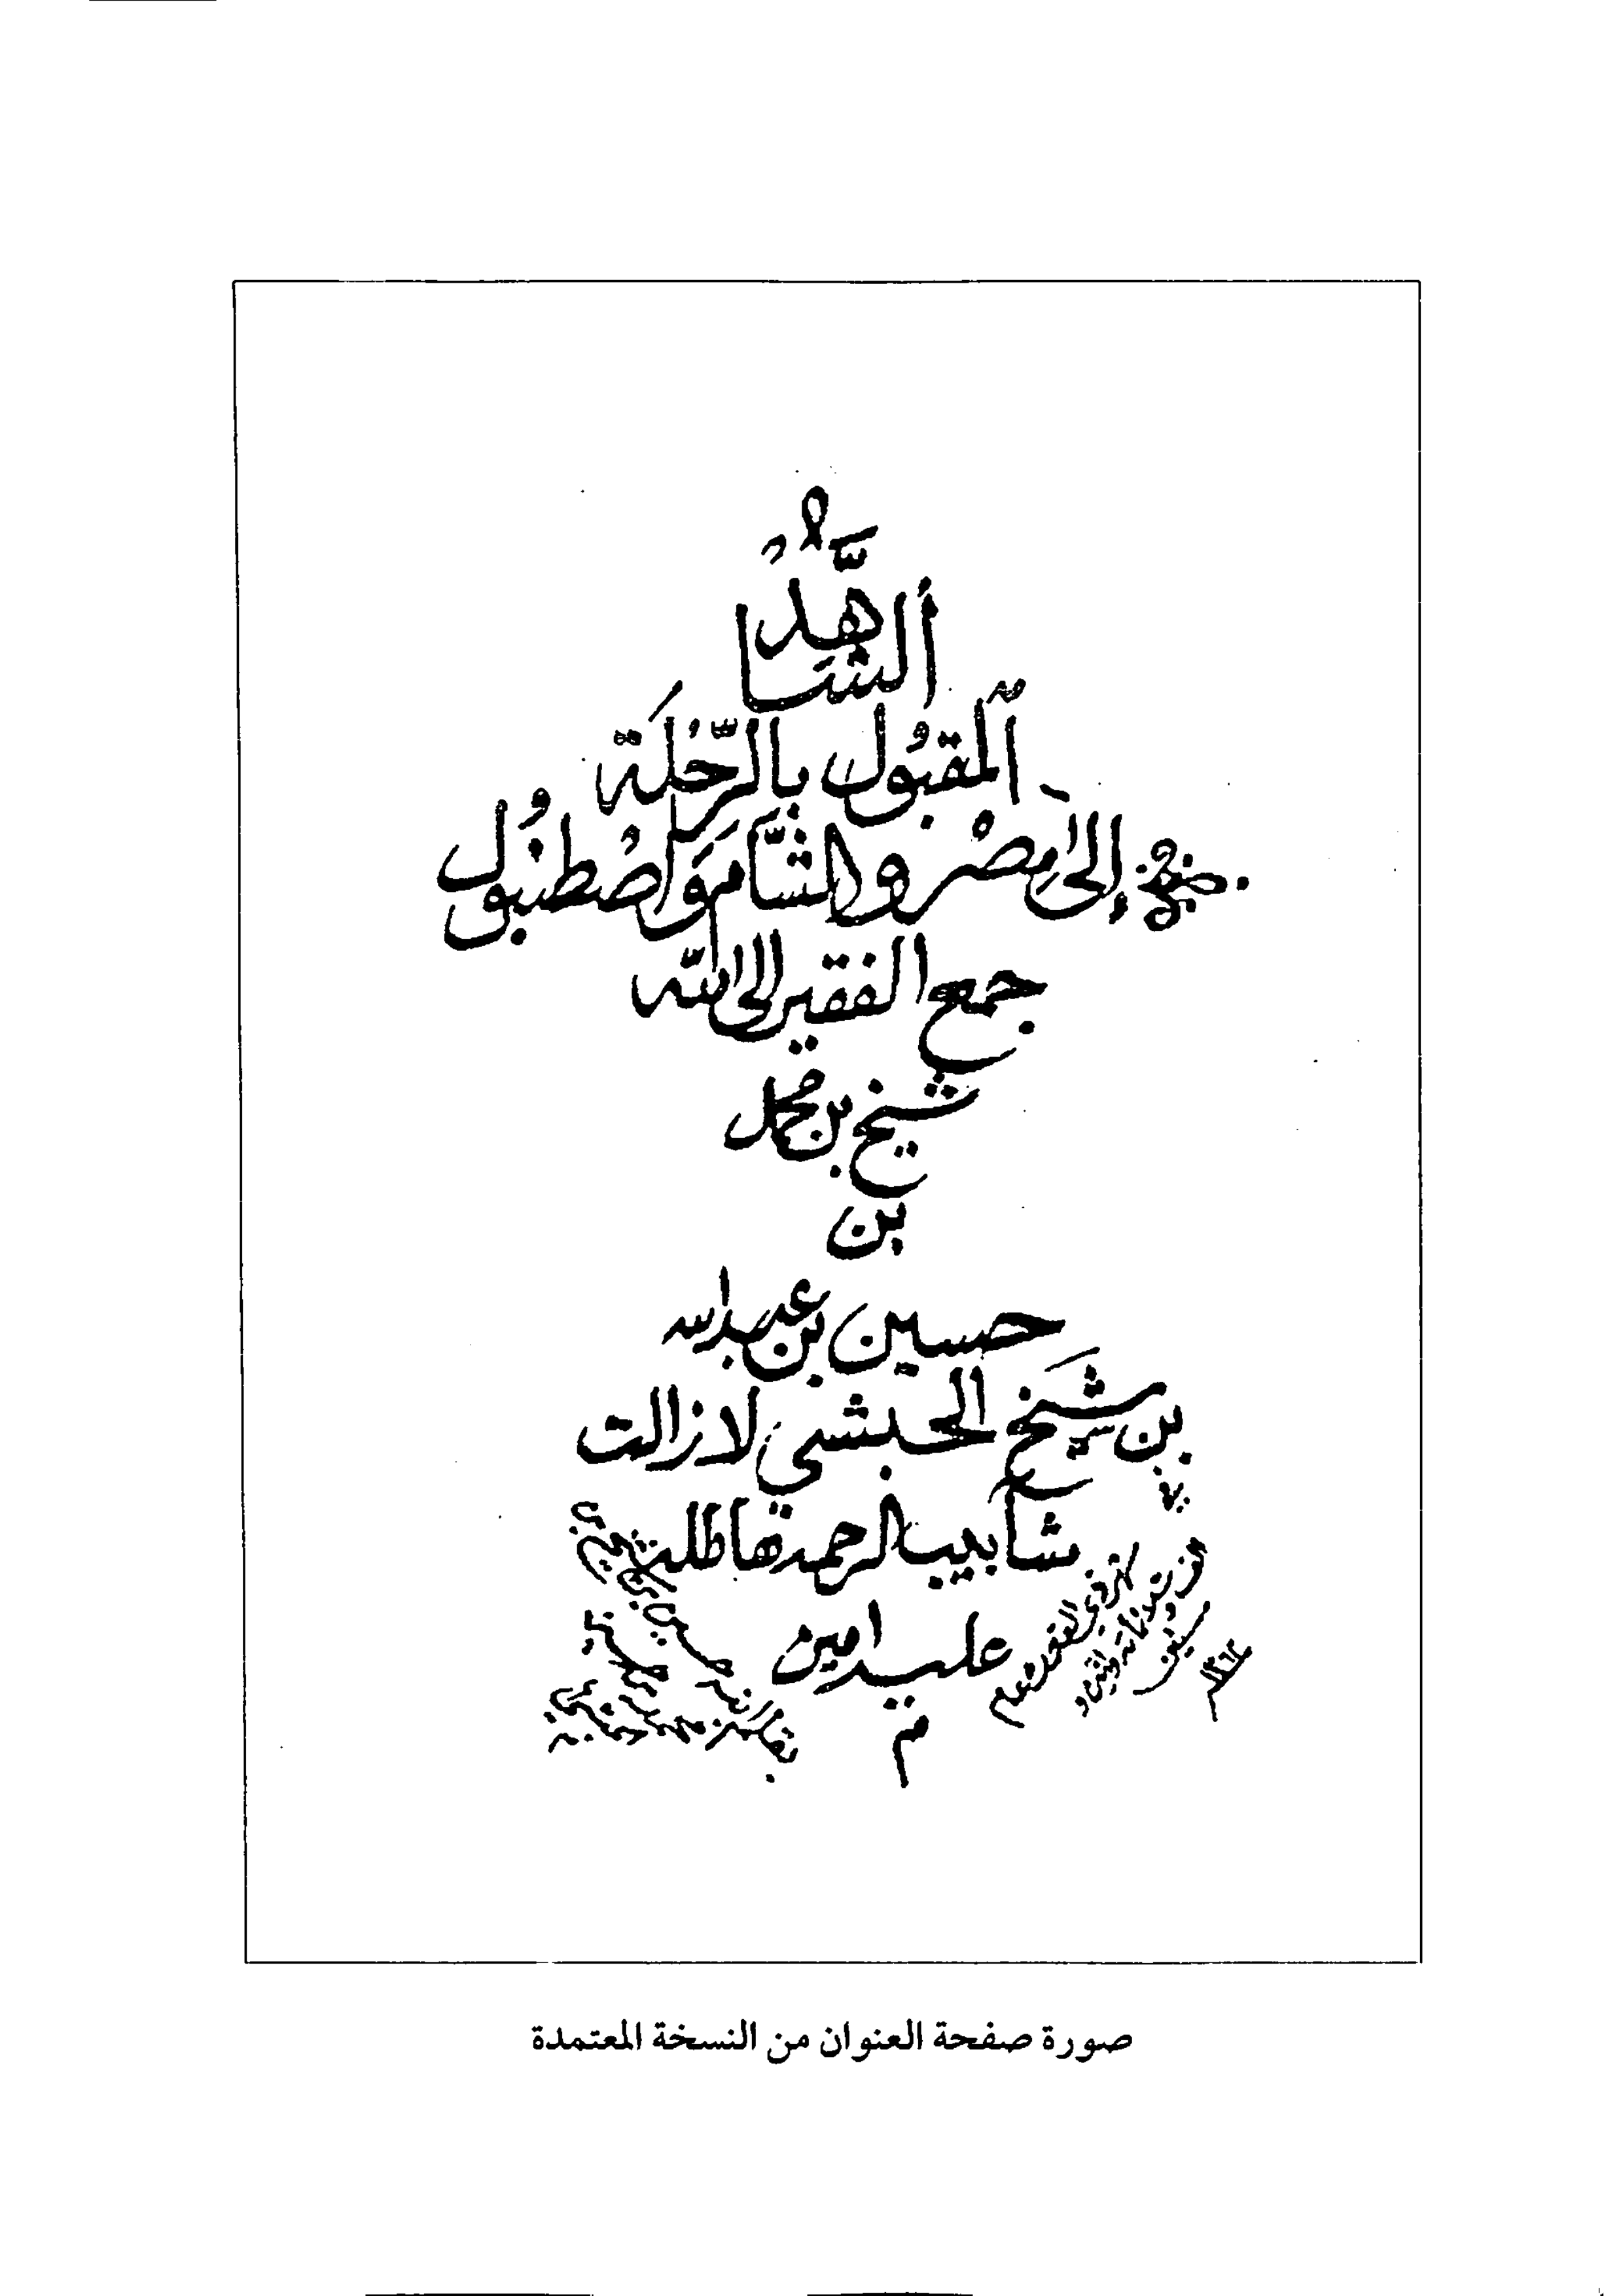 الشَّاهِدُ
المقبُول بالرِّحْلَة
إلى مِصْرَ والشَّامِ وَاصْطنبُول
جمع الفقير إلى الله
شيخ بن محمد
بن
حسين بن عبد الله
بن شيخ الحبشي لا زالت
شآبيب الرحمة هاطلة
عليه امين
م
صورة صفحة العنوان من النسخة المعتمدة